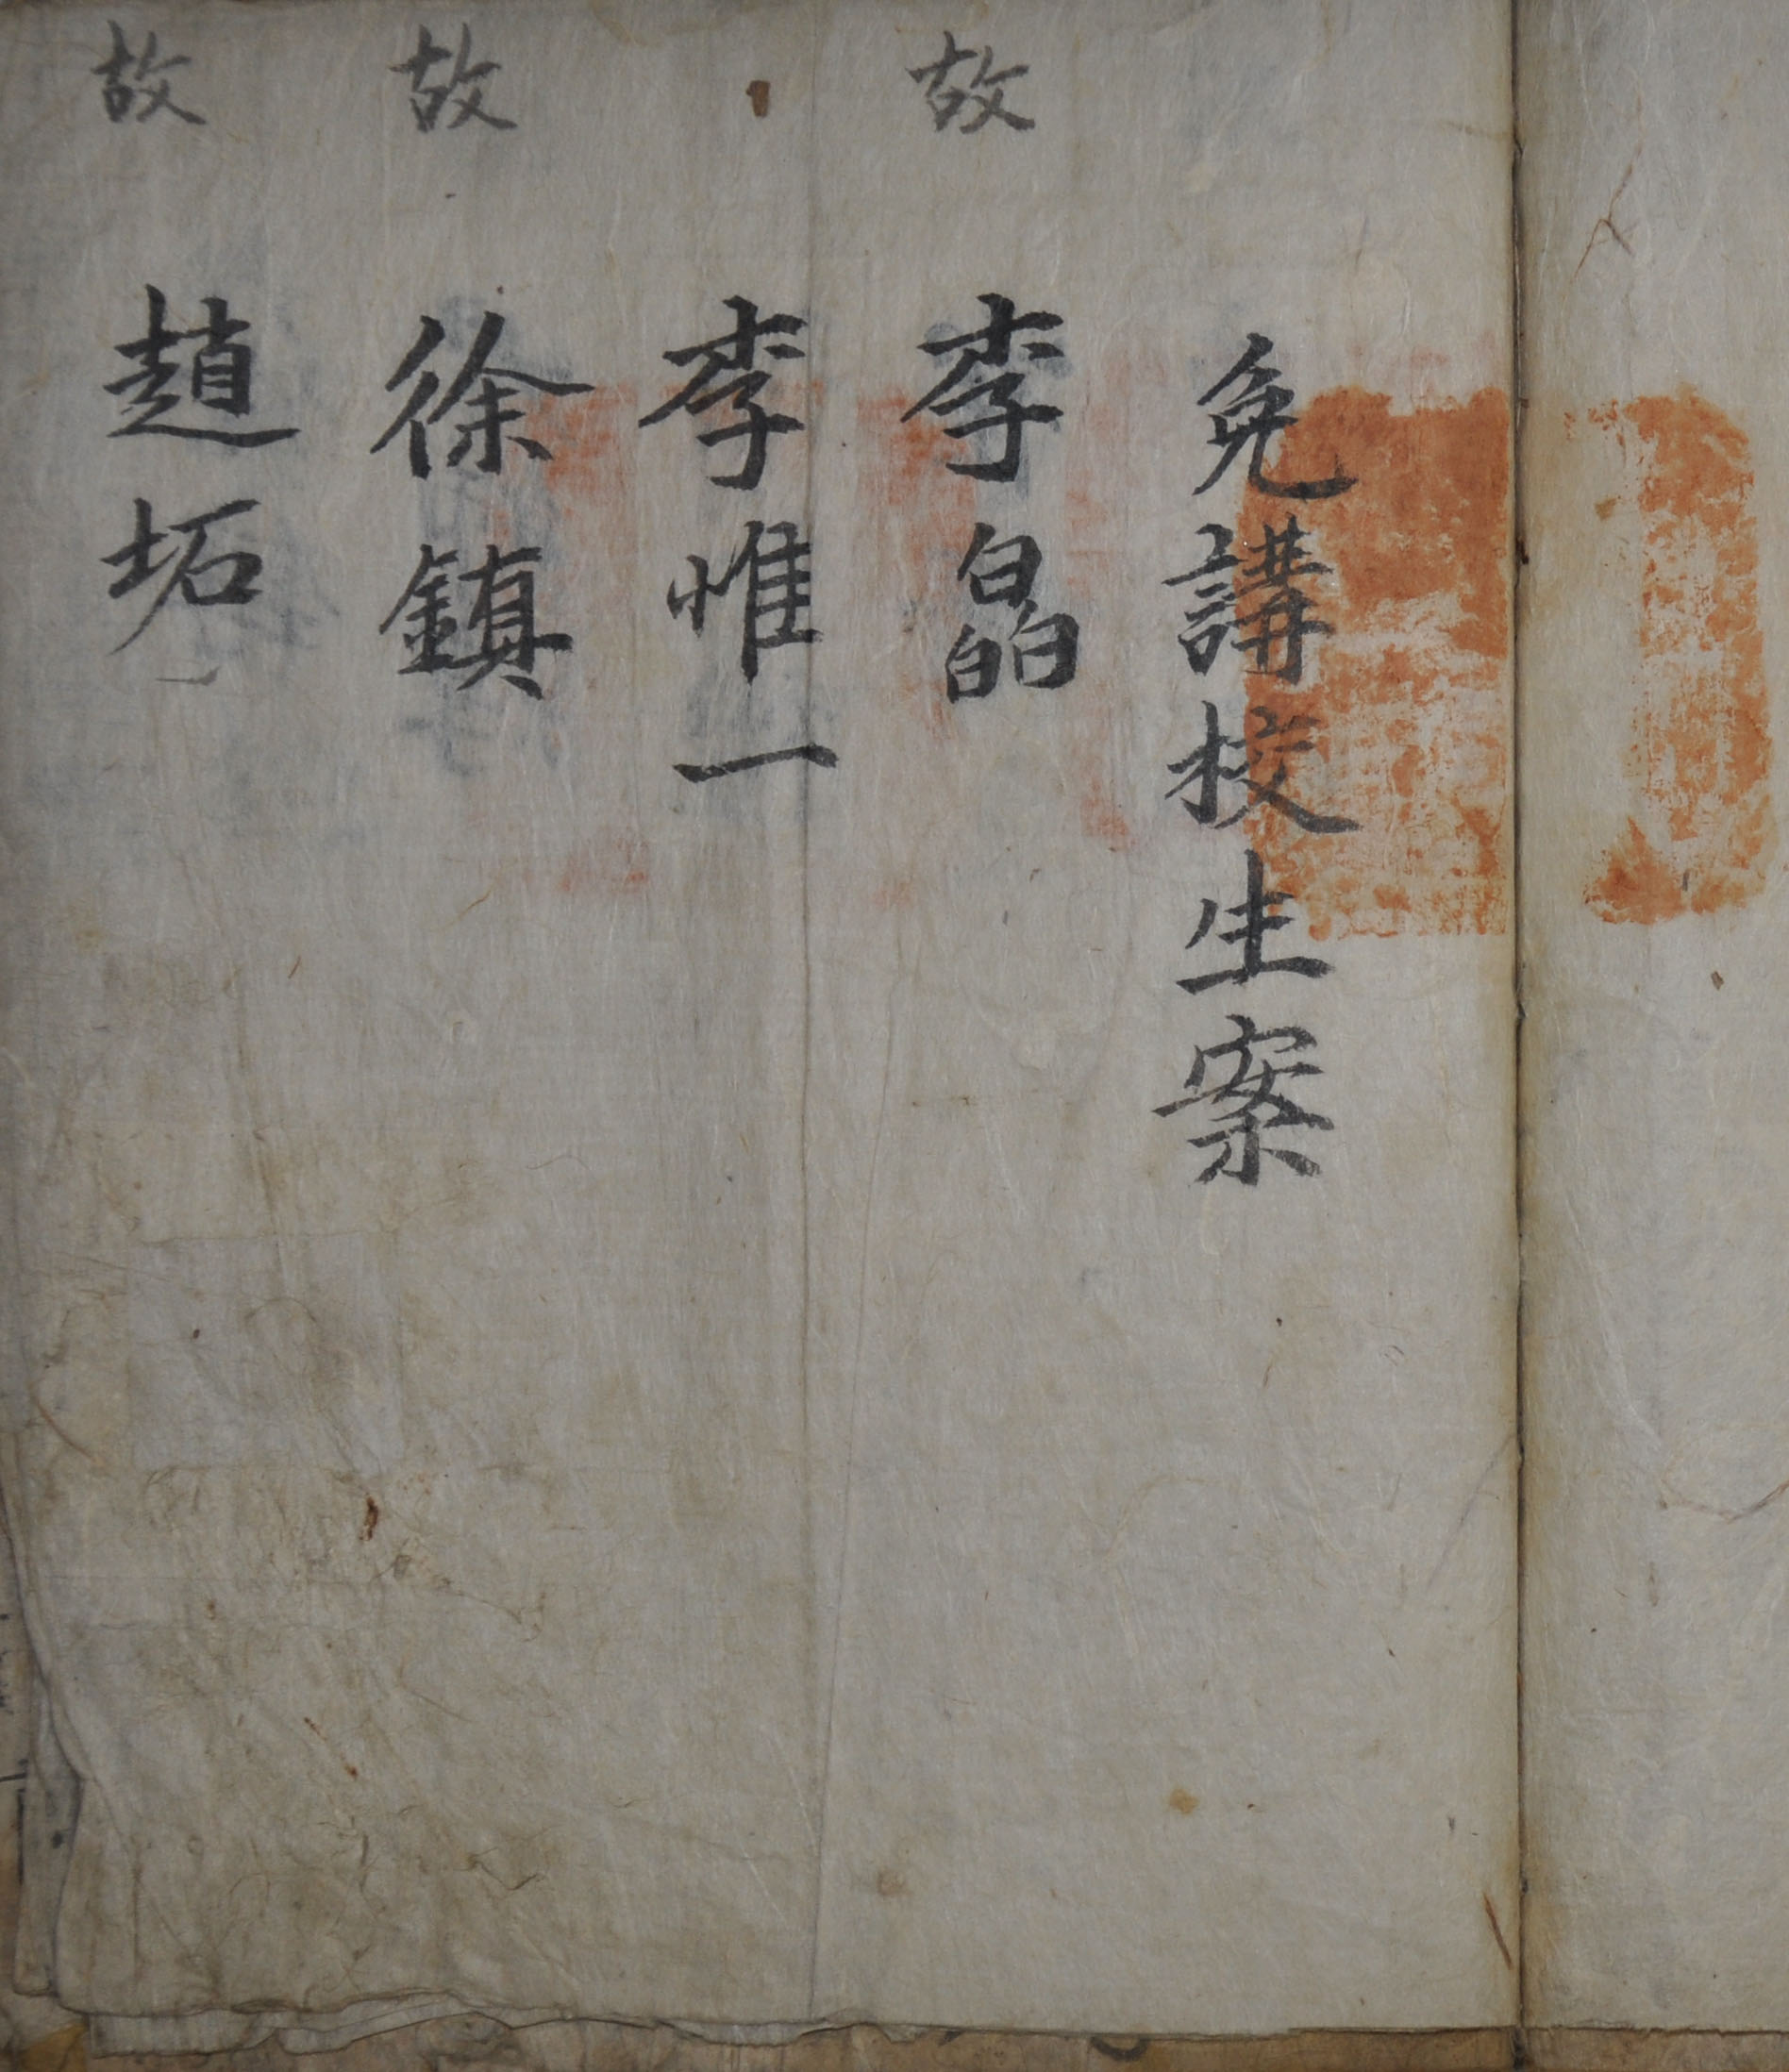 免講校生案
故 李皛
李惟一
故 徐鎭
故 趙坧